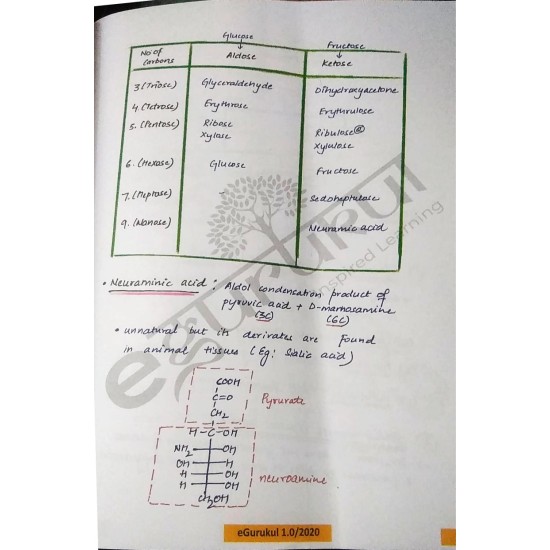 Glucose Fructose
No of Carbons Aldose Ketose
3 (Triose) Glyceraldehyde Dihydroxyacetone
4. (Tetrose) Erythrose Erythrulose
5. (Pentose) Ribose Ribulose
Xylose Xylulose
6. (Hexose) Glucose Fructose
7. (Heptose) - Sedoheptulose
9. (Nonose) Neuramic acid
• Neuraminic acid : Aldol condensation product of
pyruvic acid + D-mannosamine
(3C) (6C)
• unnatural but its derivates are found
in animal tissues (Eg: Sialic acid)
COOH
C=O
CH2
Pyruvate
H-C-OH
NH2 OH
OH H
H OH
H OH
CH2OH
neuroamine
eGurukul
Inspired Learning
eGurukul 1.0/2020